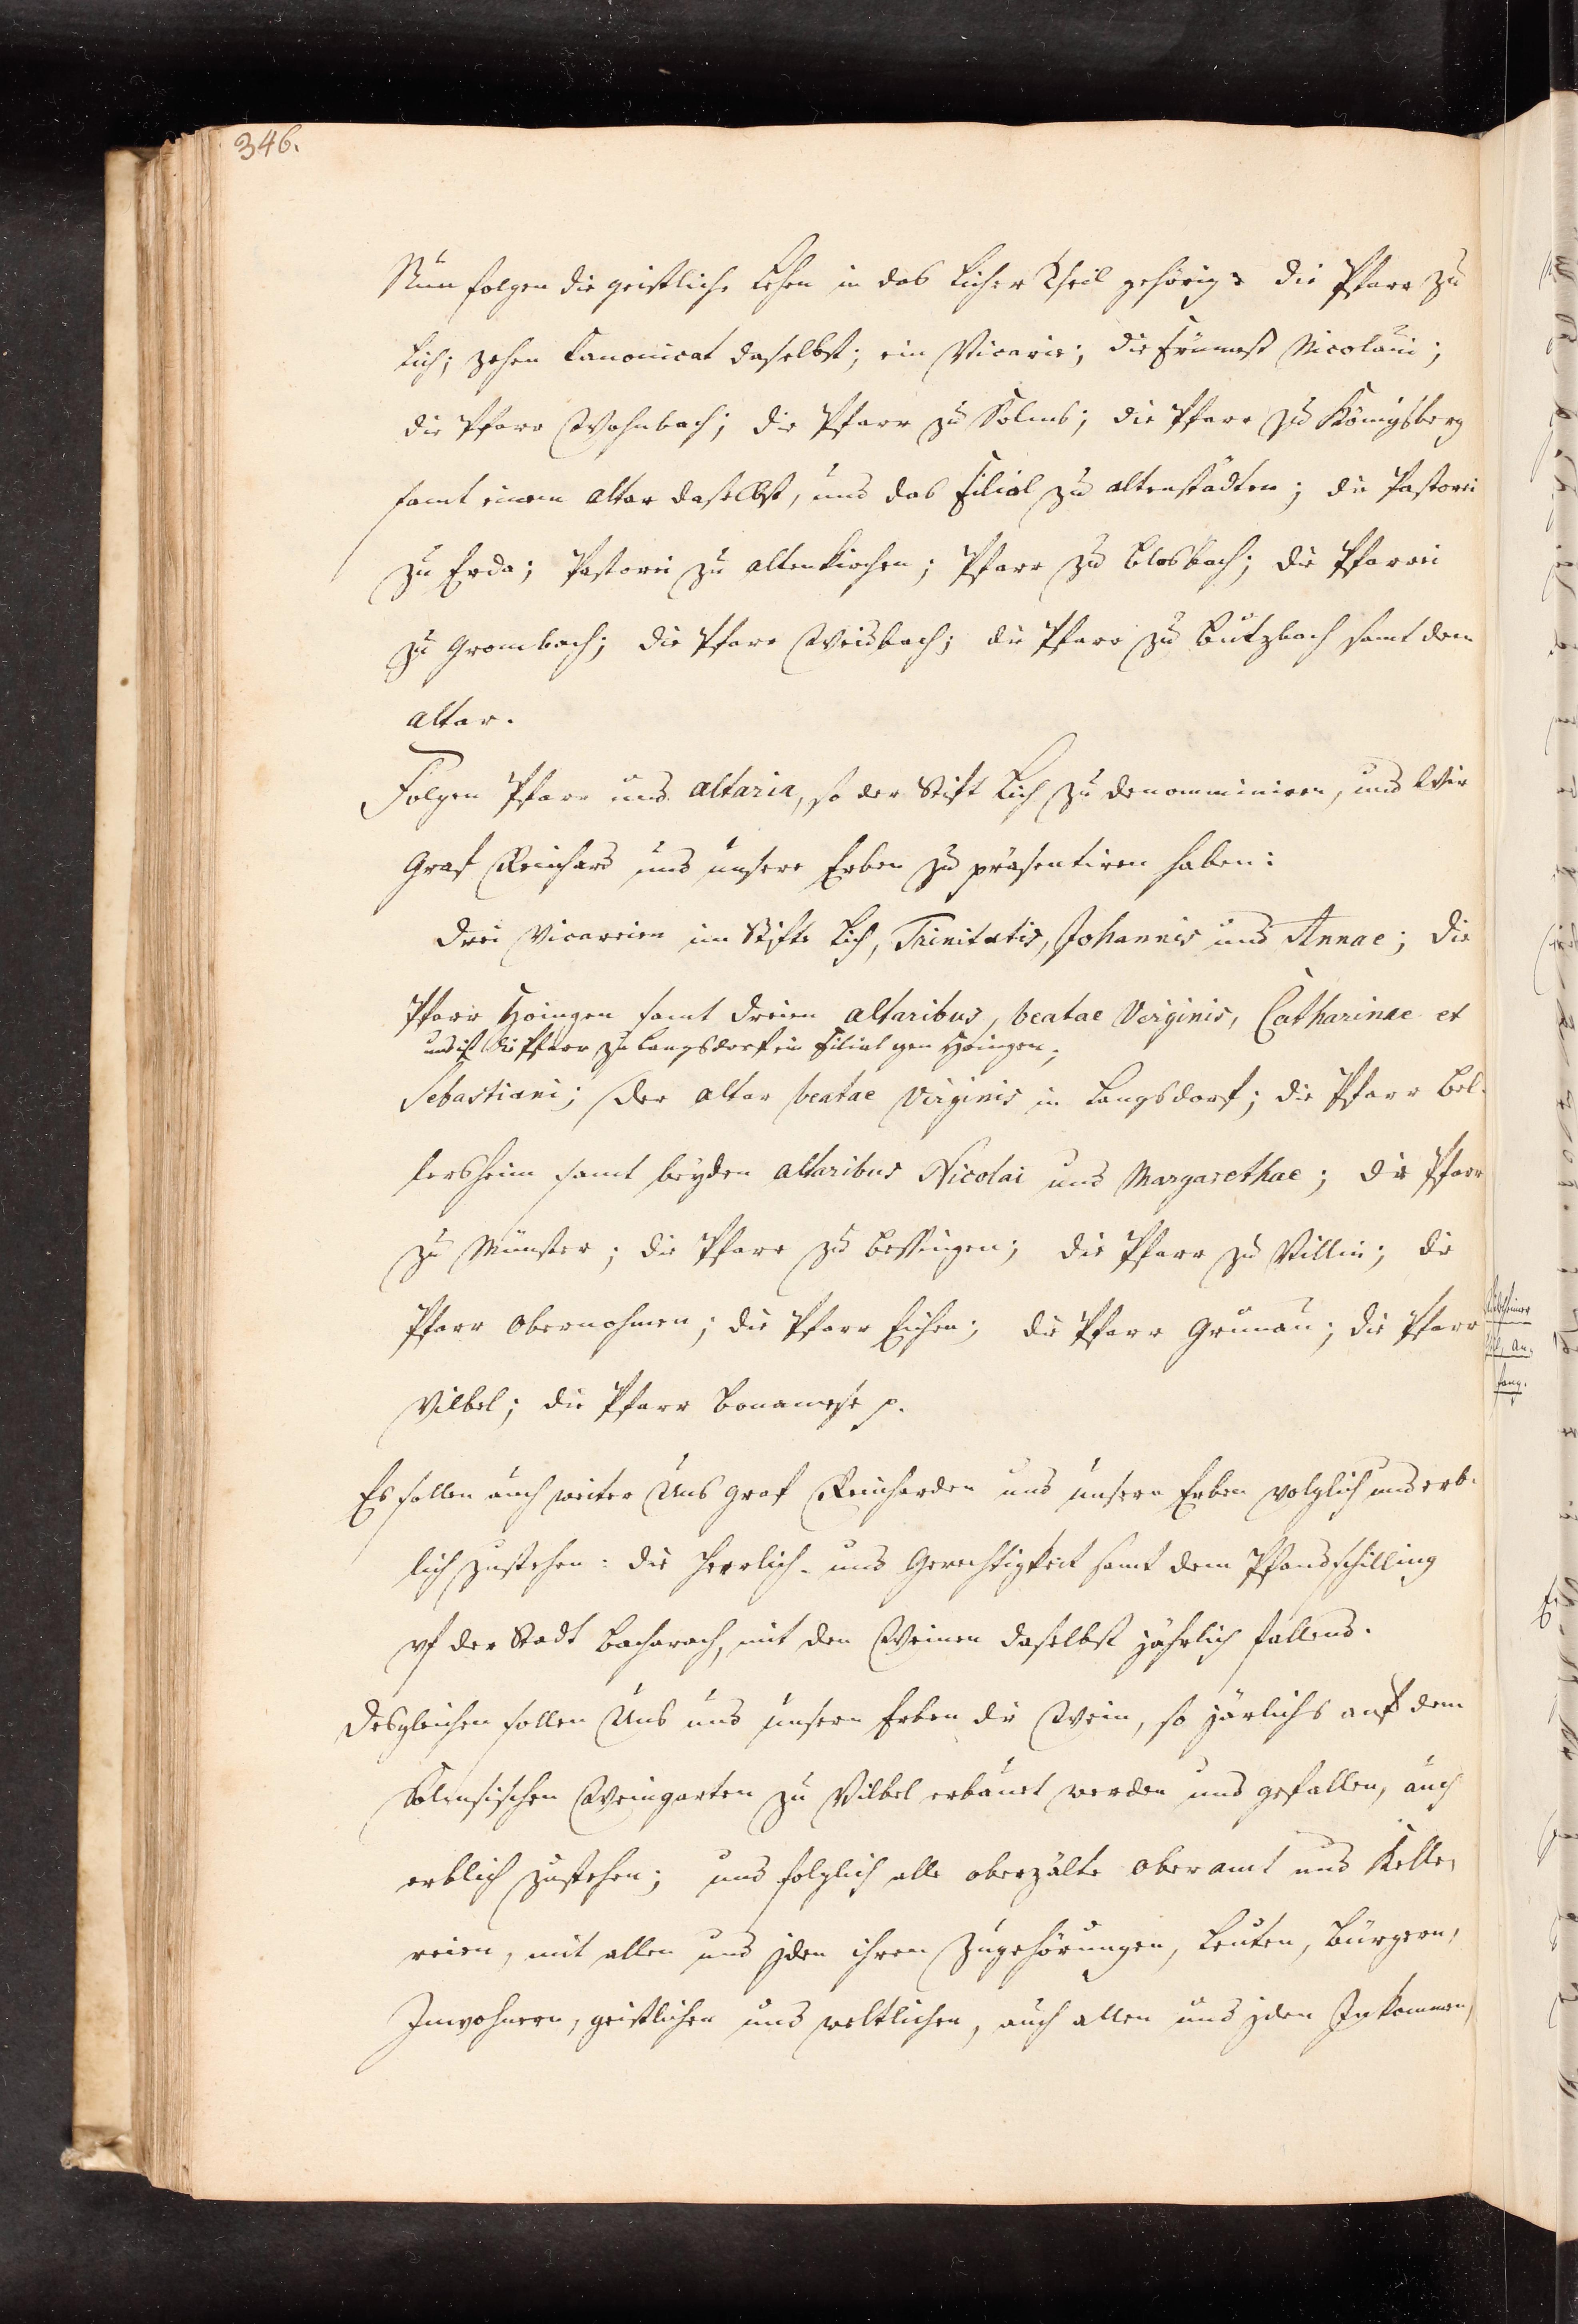 346.
Nun folgen die geistliche Lehen in das Licher Theil gehörig: die Pfarr zu
Lich; zehen Canonicat daselbst; ein Vicarie; die Frümeß Nicolaui;
die Pfarr Wohnbach; die Pfarr zu Solms; die Pfarr zu Königsberg
samt einem Altar daselbst, und das Filial zu Altenstädten; die Pastorei
zu Erda; Pastorei zu Altenkirchen; Pfarr zu Blasbach; die Pfarrei
zu Grombach; die Pfarr Weisbach; die Pfarr zu Butzbach samt dem
Altar.
Folgen Pfarr und altaria, so der Stift Lich zu denomminiren, und Wir
Graf Reinhard und unsere Erben zu präsentiren haben:
Drei Vicareien im Stifte Lich, Trinitatis, Johannis und Annae; die
Pfarr Hoingen samt dreien altaribus, beatae Virginis, Catharinae et
und ist die Pfarr zu Langsdorf ein Filial gen Hoingen;
Sebastiani; der Altar beatae Virginis in Langsdorf; die Pfarr Bel-
lersheim samt beyden altaribus Nicolai und Margarethae; die Pfarr
zu Münster; die Pfarr zu Bessingen; die Pfarr zu Villin; die
Pfarr Obernohmen; die Pfarr Eichen; die Pfarr Grunau; die Pfarr
Vilbel; die Pfarr Bonamese p.
Es sollen auch weiter Uns Graf Reinharden und unsern Erben volglich und erb-
lich zustehen: die Herrlich- und Gerechtigkeit samt dem Pfandschilling
uf der Stadt Bacharach, mit den Weinen daselbst jährlich fallend.
Desgleichen sollen Uns und unsern Erben die Wein, so järlichs auf dem
Solmsischen Weingarten zu Vilbel erbauet werden und gefallen, auch
erblich zustehen; und folglich alle oberzälte Oberamt und Kelle,
reien, mit allen und jden ihren Zugehörungen, Leuten, Bürgern,
Inwohnern, geistlichen und weltlichen, auch allen und jden Inkommen,